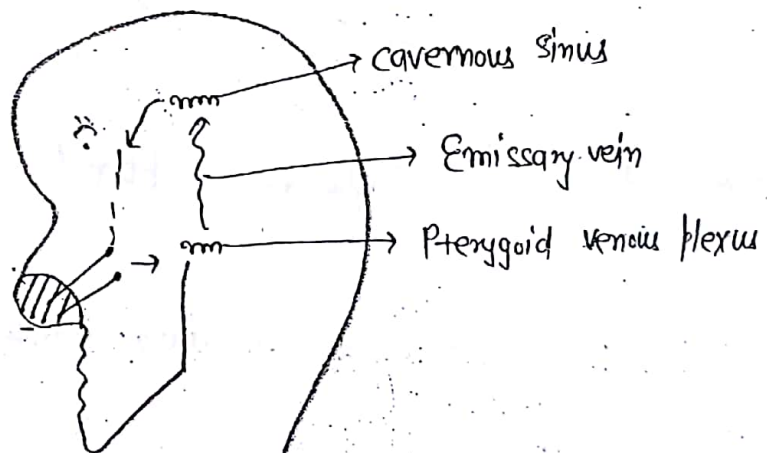 cavernous sinus
Emissary vein
Pterygoid venous plexus